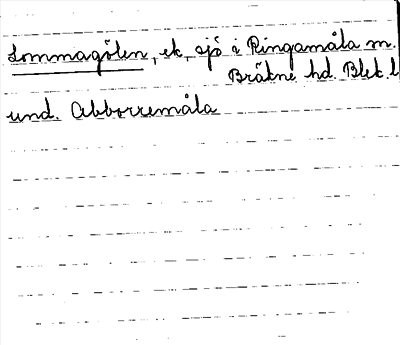 Sommagölen, ek, sjö i Ringamåla m.
Bräkne hd. Blek. l
und. Abborremåla